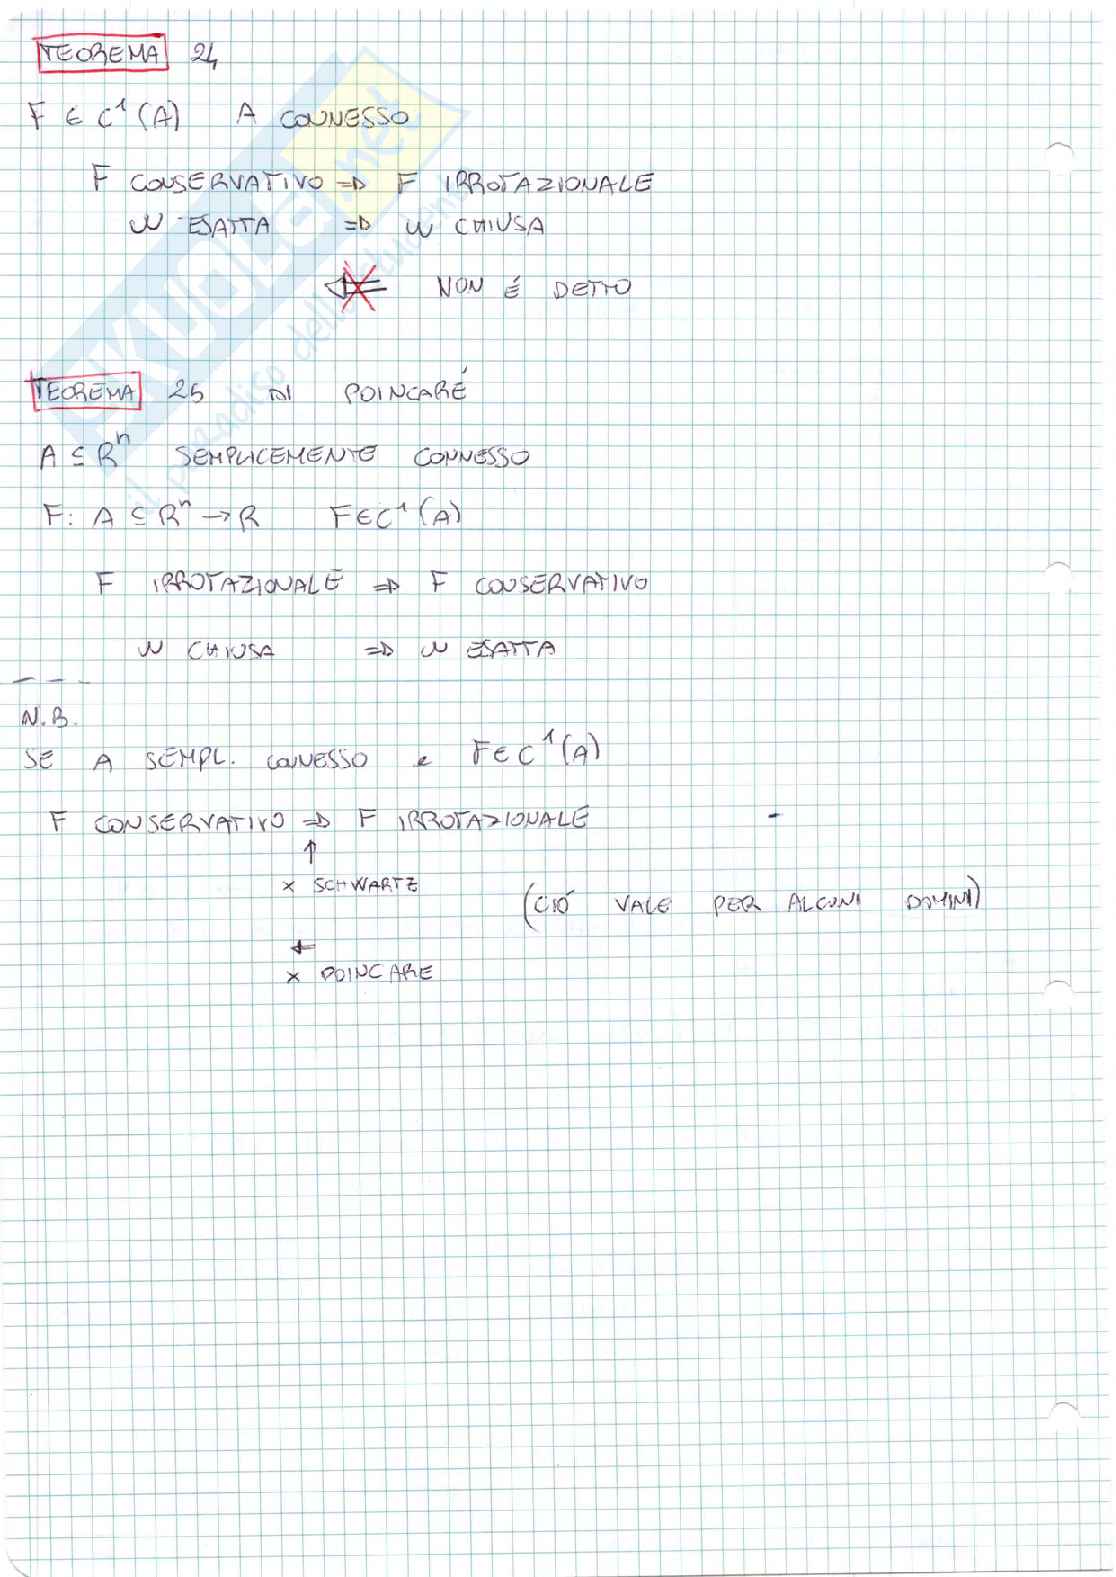 TEOREMA 24
F ∈ C¹(A) A CONNESSO
F CONSERVATIVO ⇒ F IRROTAZIONALE
W ESATTA ⇒ W CHIUSA
⇐ NON É DETTO
TEOREMA 25 DI POINCARÉ
A ⊆ Rⁿ SEMPLICEMENTE CONNESSO
F: A ⊆ Rⁿ → R F ∈ C¹(A)
F IRROTAZIONALE ⇒ F CONSERVATIVO
W CHIUSA ⇒ W ESATTA
N.B.
SE A SEMPL. CONNESSO e F ∈ C¹(A)
F CONSERVATIVO ⇒ F IRROTAZIONALE
↑
x SCHWARTZ
(CIÓ VALE PER ALCUNI DOMINI)
⇐
x POINCARE
SKUOLA.net
il paradiso dello studente